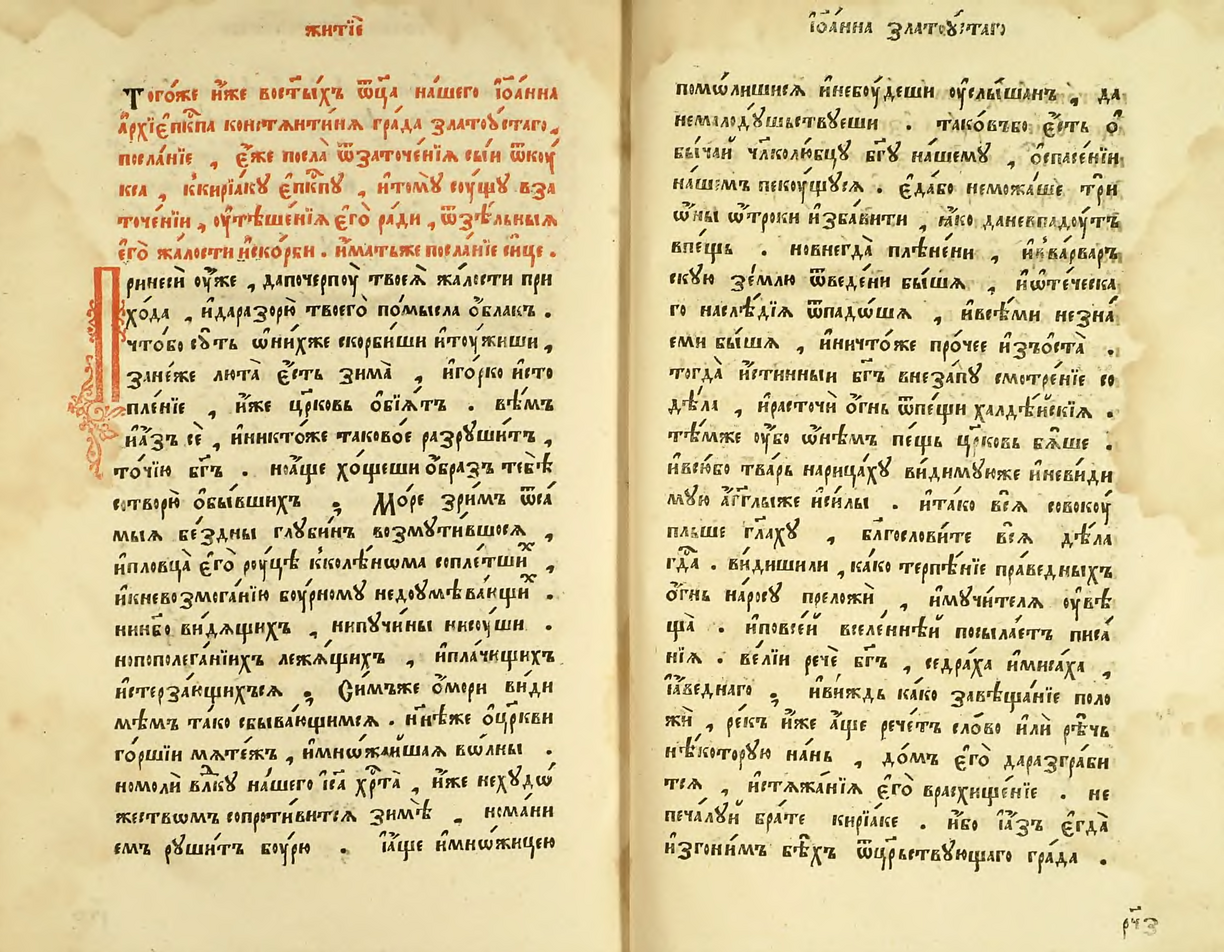 житїѐ
Тогѡ́же и҆́же востⷭ҇ы́хъ ѿц҃а на́шего і҆ѡа́нна
а҆рхїе҆пⷭ҇кпа константинѧ гра́да златоꙋстаго,
посла́нїе , є҆́же посла̀ ѿзаточе́нїѧ сы́и ѿкоꙋ́
кса , ккирїа́кꙋ е҆пⷭ҇кпꙋ , и҆томꙋ̀ соꙋ́щꙋ вза
точе́нїи , оу҆тѣше́нїѧ е҆гѡ̀ ра́ди , ѿзѣ́льныѧ
е҆го̀ жа́лости и҆ско́рби . и҆́матьже посла́нїе си́це .
Принесѝ оу҆́же , дапочерпоꙋ̀ твоеѧ̀ жа́лости при
хо́да , и҆даразорю̀ твоего̀ по́мысла о҆́блакъ .
что́бо сꙋ́ть ѡ҆ни́хже скорби́ши и҆тоꙋ́жиши ,
зане́же люта̀ є҆́сть зима̀ , и҆го́рко и҆сто
пле́нїе , и҆́же цр҃ковь ѻ҆бїѧ́тъ . вѣ́мъ
и҆а҆́зъ сѐ , и҆никто́же таково́е разрꙋши́тъ ,
то́чїю бг҃ъ . ноа҆́ще хо́щеши о҆́бразъ тебѣ̀
сотворю̀ о҆бы́вшихъ ; Мо́ре зри́мъ ѿса́
мыѧ бе́здны глꙋби́нъ возмꙋти́вшосѧ ,
и҆пловца̀ є҆го̀ рꙋ́цѣ кколѣ́нѡма сопле́тшиⷯ ,
и҆кневозмога́нїю боꙋ́рномꙋ недоꙋмѣва́ющиⷯ .
нинб҃о ви́дѧщихъ , нипꙋчи́ны нисоꙋ́ши .
нопополега́нїихъ лежѧ́щихъ , и҆пла́чищихъ
и҆стерза́ющихъсѧ ; Си́мъже ѻ҆мори ви́ди
мѣмъ та́ко сбыва́ющимсѧ . нн҃ѣже ѻ҆цр҃кви
го́ршїи мѧте́жъ , и҆мнѡ́жаишаѧ вѡ́лны .
номолѝ влⷣкꙋ нашего і҆с҃а хрⷭ҇та̀ , и҆́же нехꙋдѡ́
жествѡмъ сопроти́витсѧ зимѣ̀ , нома́ни
емъ рꙋши́тъ боꙋ́рю . і҆а҆́ще и҆мнѡ́жицею
і҆ѡа́нна златоꙋ́стагѻ
помѡ́лишисѧ и҆небоꙋ́деши оу҆слы́шанъ , да
немалодꙋ́шьствꙋеши . тако́въбо є҆́сть о҆
бы́чай чл҃колю́бцꙋ бг҃ꙋ нашемꙋ , ѻ҆спасе́нїи
на́шемъ пекоꙋ́щꙋсѧ . є҆да́бо неможа́ше трѝ
ѡ҆ны ѻ҆́троки и҆зба́вити , ꙗ҆́ко даневпадоꙋ́тъ
впе́щь . новнегда̀ плѣне́ни , и҆ква́рваръ
скꙋю зе́млю ѿведе́ни бы́шѧ , и҆ѿте́ческа
го наслѣ́дїѧ ѿпадо́шѧ , и҆всѣ́ми незна́
еми бы́шѧ , и҆ничто́же про́чее и҆зъѻ҆ста̀ .
тогда̀ и҆́стинныи бг҃ъ внеза́пꙋ смотре́нїе со
дѣ́ла , и҆расточѝ ѻ҆́гнь ѿпе́щи халдѣ́искїѧ .
тѣ́мже оу҆́бо ѡ҆нѣ́мъ пе́щь цр҃ковь бѧ́ше .
и҆всю́бо тва́рь нарица́хꙋ ви́димꙋюже и҆неви́ди
мꙋю а҆́гг҃лыже и҆си́лы . и҆та́ко всѧ̀ совокоꙋ́
пльше гл҃ахꙋ , блг҃ослови́те всѧ̀ дѣ́ла
гдⷭ҇нѧ . ви́дишили , ка́ко терпѣ́нїе пра́ведныхъ
ѻ҆́гнь наро́сꙋ преложѝ , и҆мꙋчи́телѧ оу҆вѣ
ща̀ . и҆повсе́й вселе́ннѣй посыла́етъ писа́
нїѧ . ве́лїи речѐ бг҃ъ , седра́ха и҆миса́ха ,
і҆а҆вде́наго ; и҆ви́ждь ка́ко завѣща́нїе поло
жѝ , ре́къ и҆́же а҆́ще рече́тъ сло́во и҆лѝ рѣ́чь
нѣ́которꙋю на́нь , до́мъ є҆го̀ даразгра́би
тсѧ , и҆стѧжа́нїѧ є҆го̀ врасхище́нїе . не
печа́лꙋй бра́те кирїа́ке . и҆́бо і҆а҆́зъ є҆гда̀
и҆згони́мъ бѣ́хъ ѿцр҃ьствꙋ́ющаго гра́да .
рч҃з